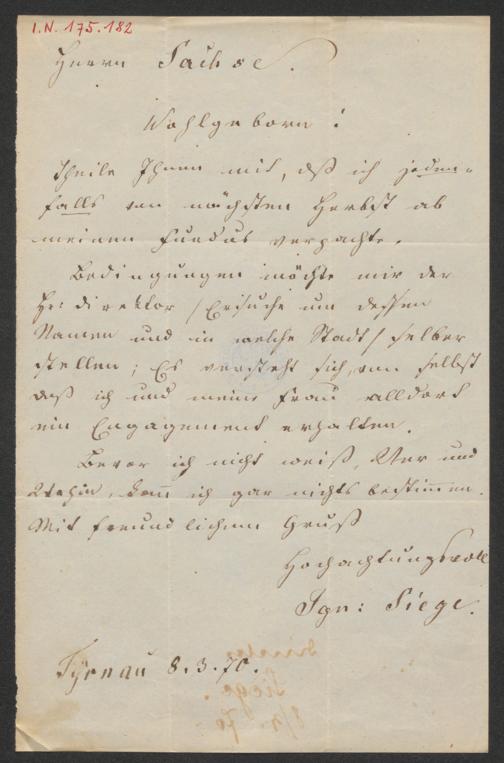 I.N. 175.182
Herrn Sachse.
Wohlgeborn!
Theile Ihnen mit, daß ich jeden-
falls von nächsten Herbst ab
meinen Fundus verpachte.
Bedingungen möchte mir der
H: direktor /Ersuche um dessen
Namen und in welche Stadt/ selber
stellen; Es versteht sich, von selbst
daß ich und meine Frau alldort
ein Engagement erhalten.
Bevor ich nicht weiß, Wer und
Wohin, kann ich gar nichts bestimmen.
Mit freundlichen Gruß
Hochachtungsvoll
Ign: Siege.
Tyrnau 8.3.70.
Siege
8/3 70